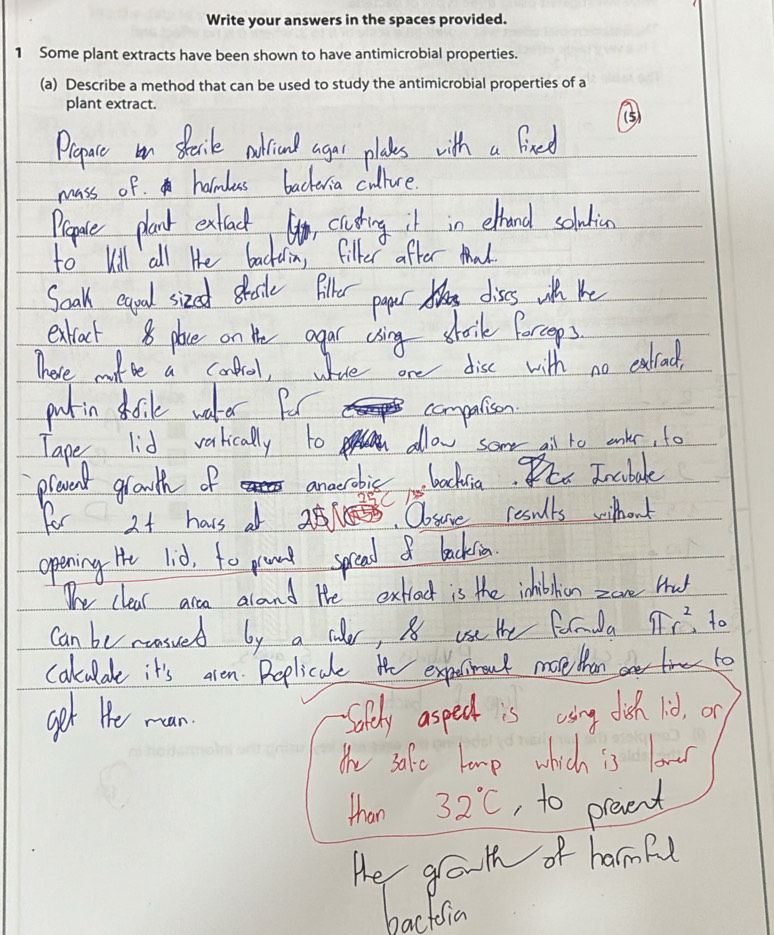 Write your answers in the spaces provided.
1 Some plant extracts have been shown to have antimicrobial properties.
(a) Describe a method that can be used to study the antimicrobial properties of a
plant extract.
(5)
Prepare sterile nutrient agar plates with a fixed
mass of harmless bacteria culture.
Prepare plant extract, crushing it in ethanol solution
to kill all the bacteria, filter after that.
Soak equal sized sterile filter paper discs with the
extract & place on the agar using sterile forceps.
There must be a control, where one disc with no extract,
put in sterile water for comparison.
Tape lid vertically to allow some air to enter, to
prevent growth of anaerobic bacteria. Incubate
for 24 hours at 25°C. Observe results without
opening the lid, to prevent spread of bacteria.
The clear area around the extract is the inhibition zone that
can be measured by a ruler, & use the formula πr², to
calculate it's area. Replicate the experiment more than one time to
get the mean.
Safety aspect is using dish lid, or
the safe temp which is lower
than 32°C, to prevent
the growth of harmful
bacteria